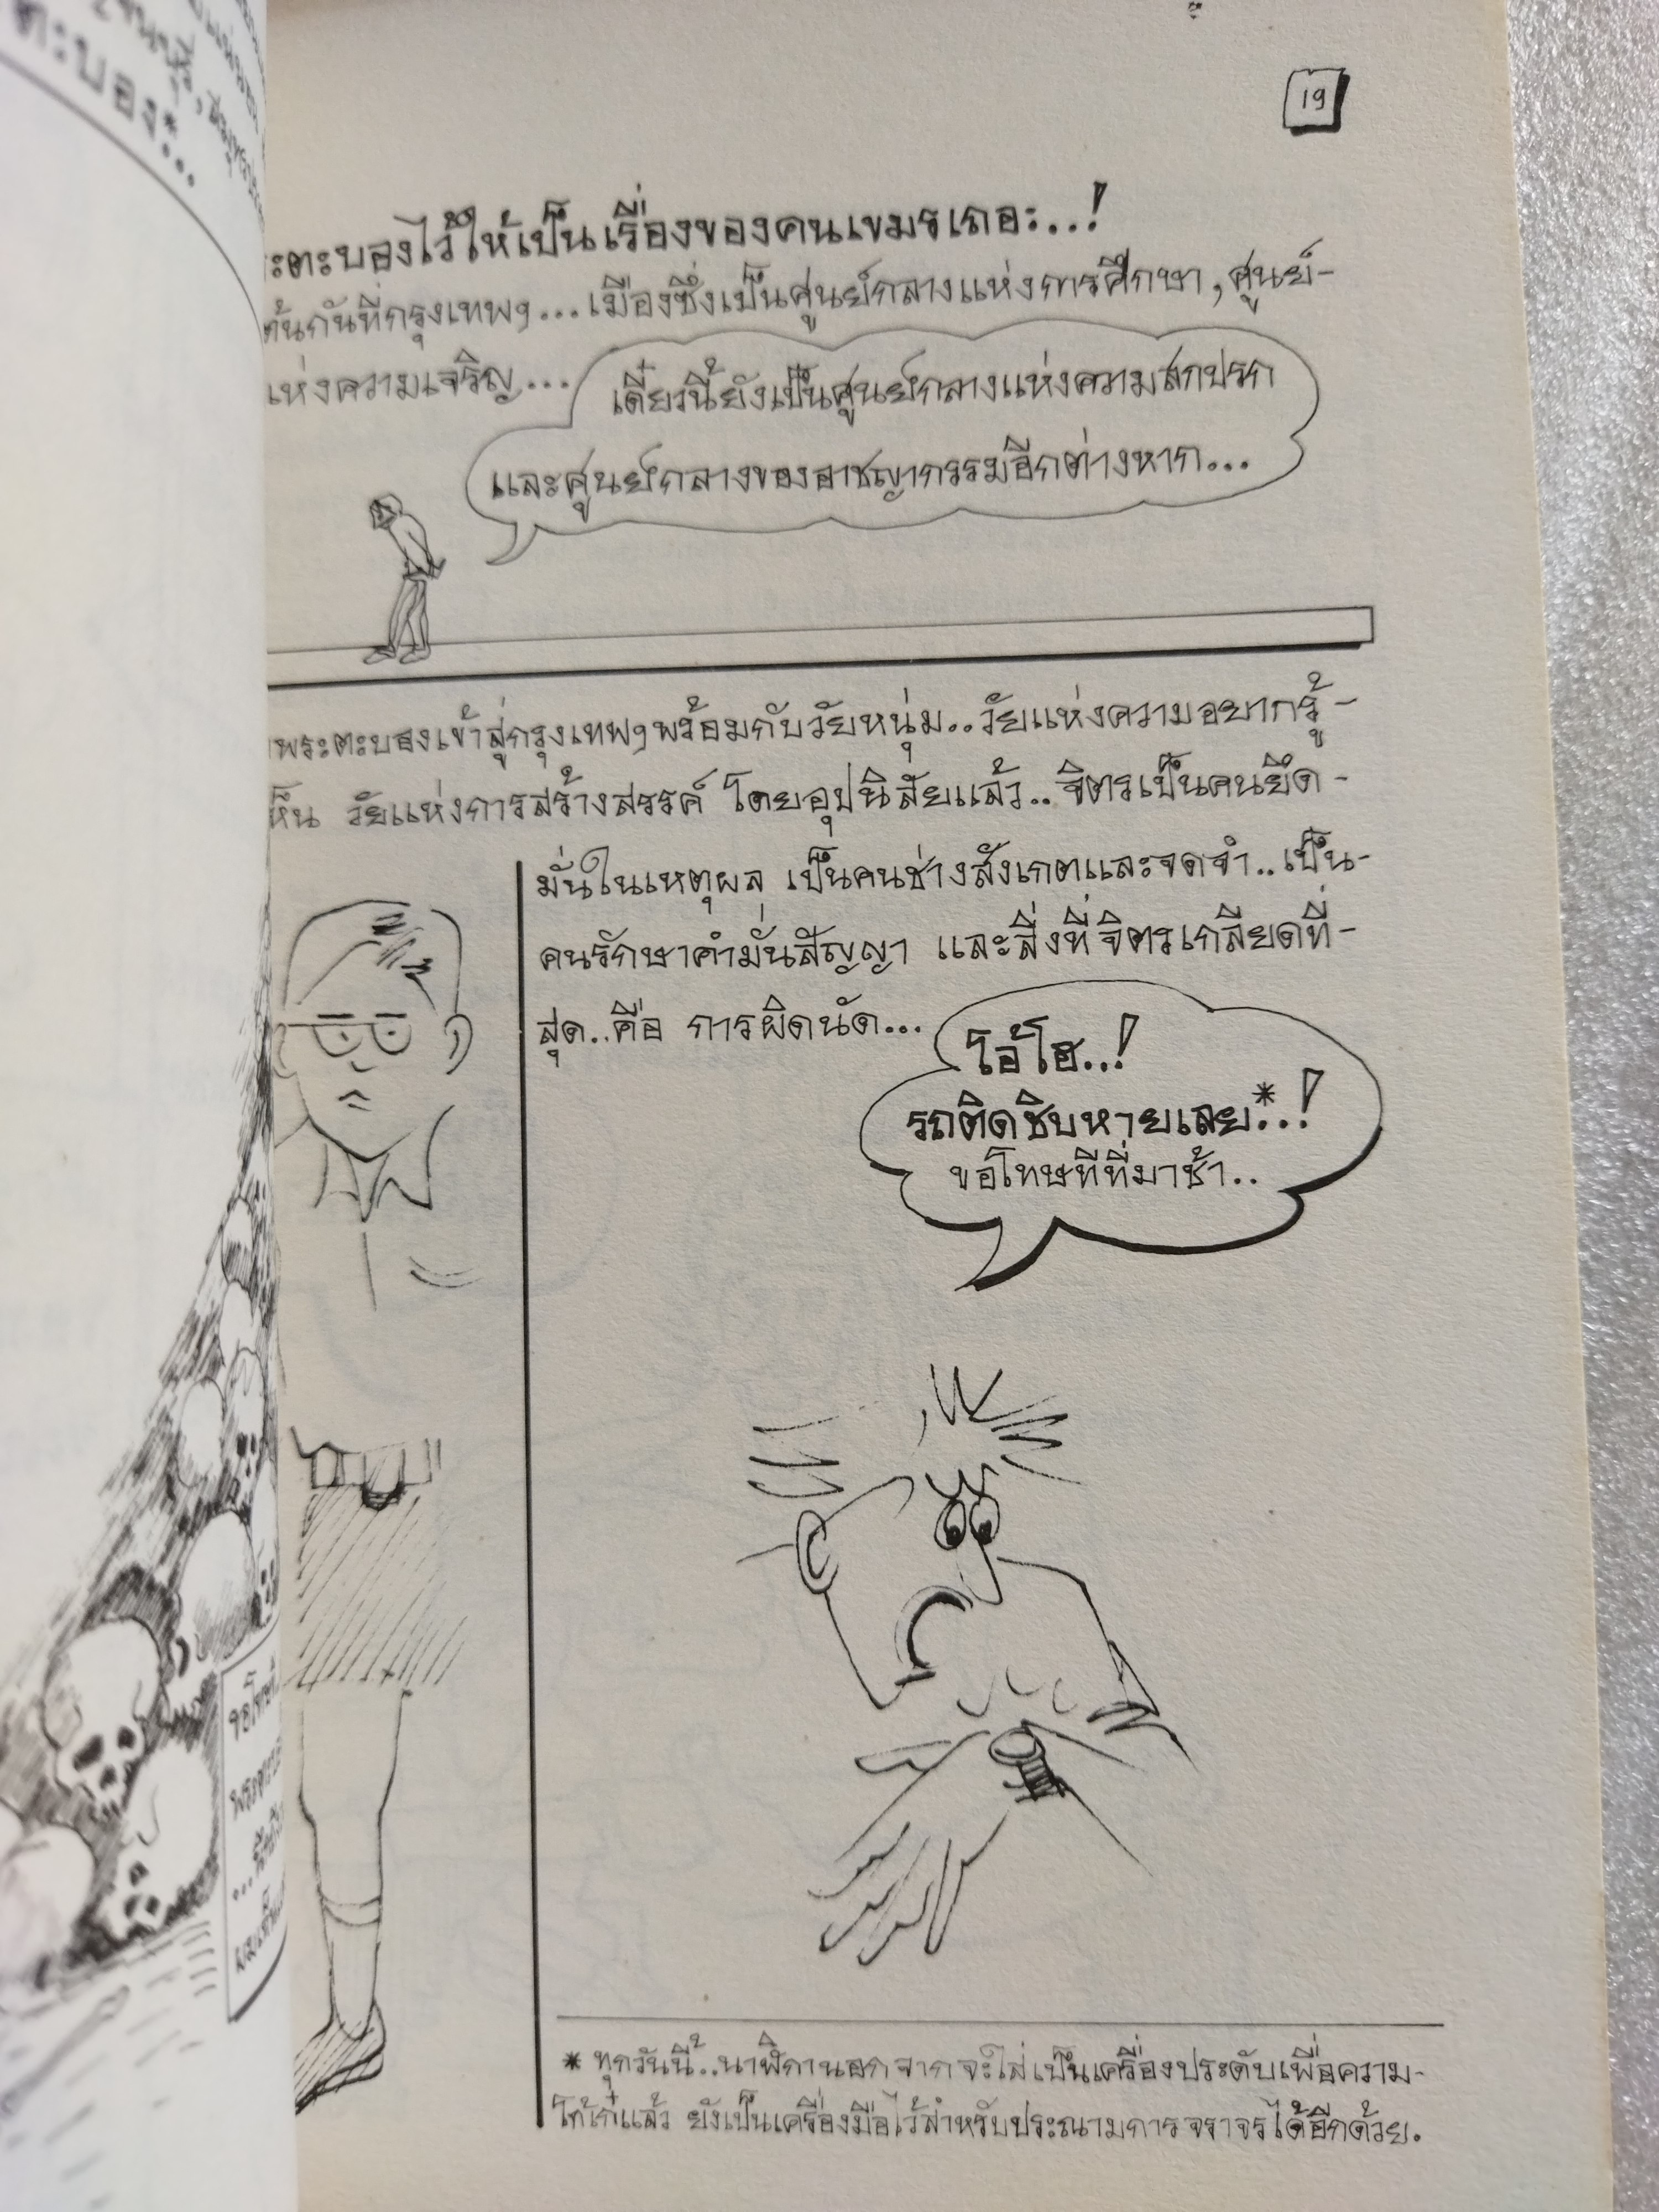 ตะบอง*...
19
ะตะบองไว้ให้เป็นเรื่องของคนเขมรเถอะ..!
ต้นกันที่กรุงเทพฯ...เมืองซึ่งเป็นศูนย์กลางแห่งการศึกษา, ศูนย์-
แห่งความเจริญ...
เดี๋ยวนี้ยังเป็นศูนย์กลางแห่งความสกปรก
และศูนย์กลางของอาชญากรรมอีกต่างหาก...
พระตะบองเข้าสู่กรุงเทพฯพร้อมกับวัยหนุ่ม..วัยแห่งความอยากรู้-
เห็น วัยแห่งการสร้างสรรค์ โดยอุปนิสัยแล้ว..จิตรเป็นคนยึด-
มั่นในเหตุผล เป็นคนช่างสังเกตและจดจำ..เป็น-
คนรักษาคำมั่นสัญญา และสิ่งที่จิตรเกลียดที่-
สุด..คือ การผิดนัด...
โอ้โฮ..!
รถติดชิบหายเลย*..!
ขอโทษทีที่มาช้า..
* ทุกวันนี้..นาฬิกานอกจากจะใส่เป็นเครื่องประดับเพื่อความ-
โก้เก๋แล้ว ยังเป็นเครื่องมือไว้สำหรับประณามการจราจรได้อีกด้วย.